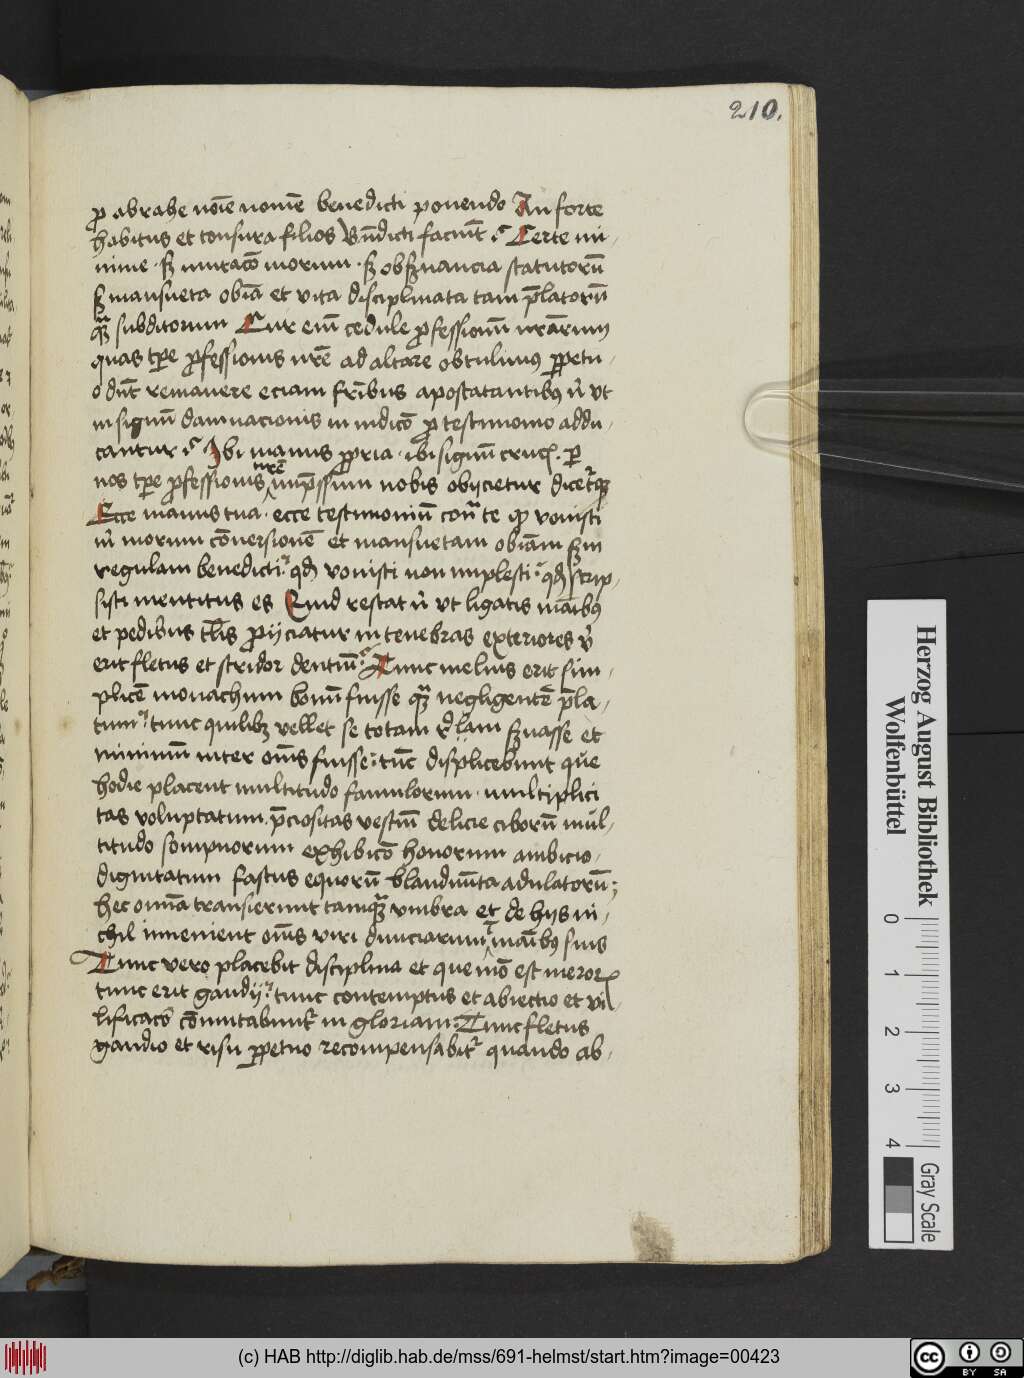 210.
p̱ abrahe noīe nomē benedicti ponendo An forte
habitus et tonsura filios Bn̄dicti faciūt ? Certe mi-
nime · sȝ mutacō morum · sȝ obſuancia statutorū
sȝ mansueta obīa et vita disciplinata tam p̄latorū
qȝ subditorum Cur eni cedule ꝓfessionū nrārum
quas tp̄e ꝓfessionis nrē ad altare obtulimꝰ ꝑpetu-
o dn̄t remanere eciam frībus apostatantibꝰ n̄ vt
in signū damnacionis in iudicō ꝓ testimonio addu-
cantur ? Ibi manus ꝓpria · ibi signū crucꝭ · ꝑ
nos tp̄e ꝓfessionis nrē impssum nobis obijcietur diceturqȝ
Ecce manus tua · ecce testimoniū cont͛ te ꝙ vouisti
in̄ morum cōuersionē et mansuetam obīam scdm
regulam benedicti · qd vouisti non implesti · qd scrip-
sisti mentitus es Quid restat n̄ vt ligatis maībꝰ
et pedibus tl̄is ꝓijciatur in tenebras exteriores vͥ
erit fletus et stridor dentiū · Tunc melius erit sim-
plicē monachum bonū fuisse qȝ negligentē p̄la-
tum · tunc quilibȝ vellet se totam rl̄am ſuasse et
minimū inter om̄s fuisse · tūc displicebunt que
hodie placent multitudo famulorum · multiplici
tas voluptatum, p̄ciositas vestiū delicie ciborū mul-
titudo sompnorum exhibicō honorum ambicio-
dignitatum fastus equorū blandimīta adulatorū ;
hec omīa transierunt tamqȝ vmbra et de hijs ni-
chil inuenient om̄s viri diuiciarum ī maībꝰ suis
Tunc vero placebit disciplina et que mō est meror
tunc erit gaudij · tunc contemptus et abiectio et vi-
lificacō cōmutabunt͛ in gloriam · Tunc fletus
gaudio et risu ꝑpetuo recompensabit͛ quando ab-
Herzog August Bibliothek
Wolfenbüttel
0 1 2 3 4
Gray Scale
(c) HAB http://diglib.hab.de/mss/691-helmst/start.htm?image=00423
cc BY SA